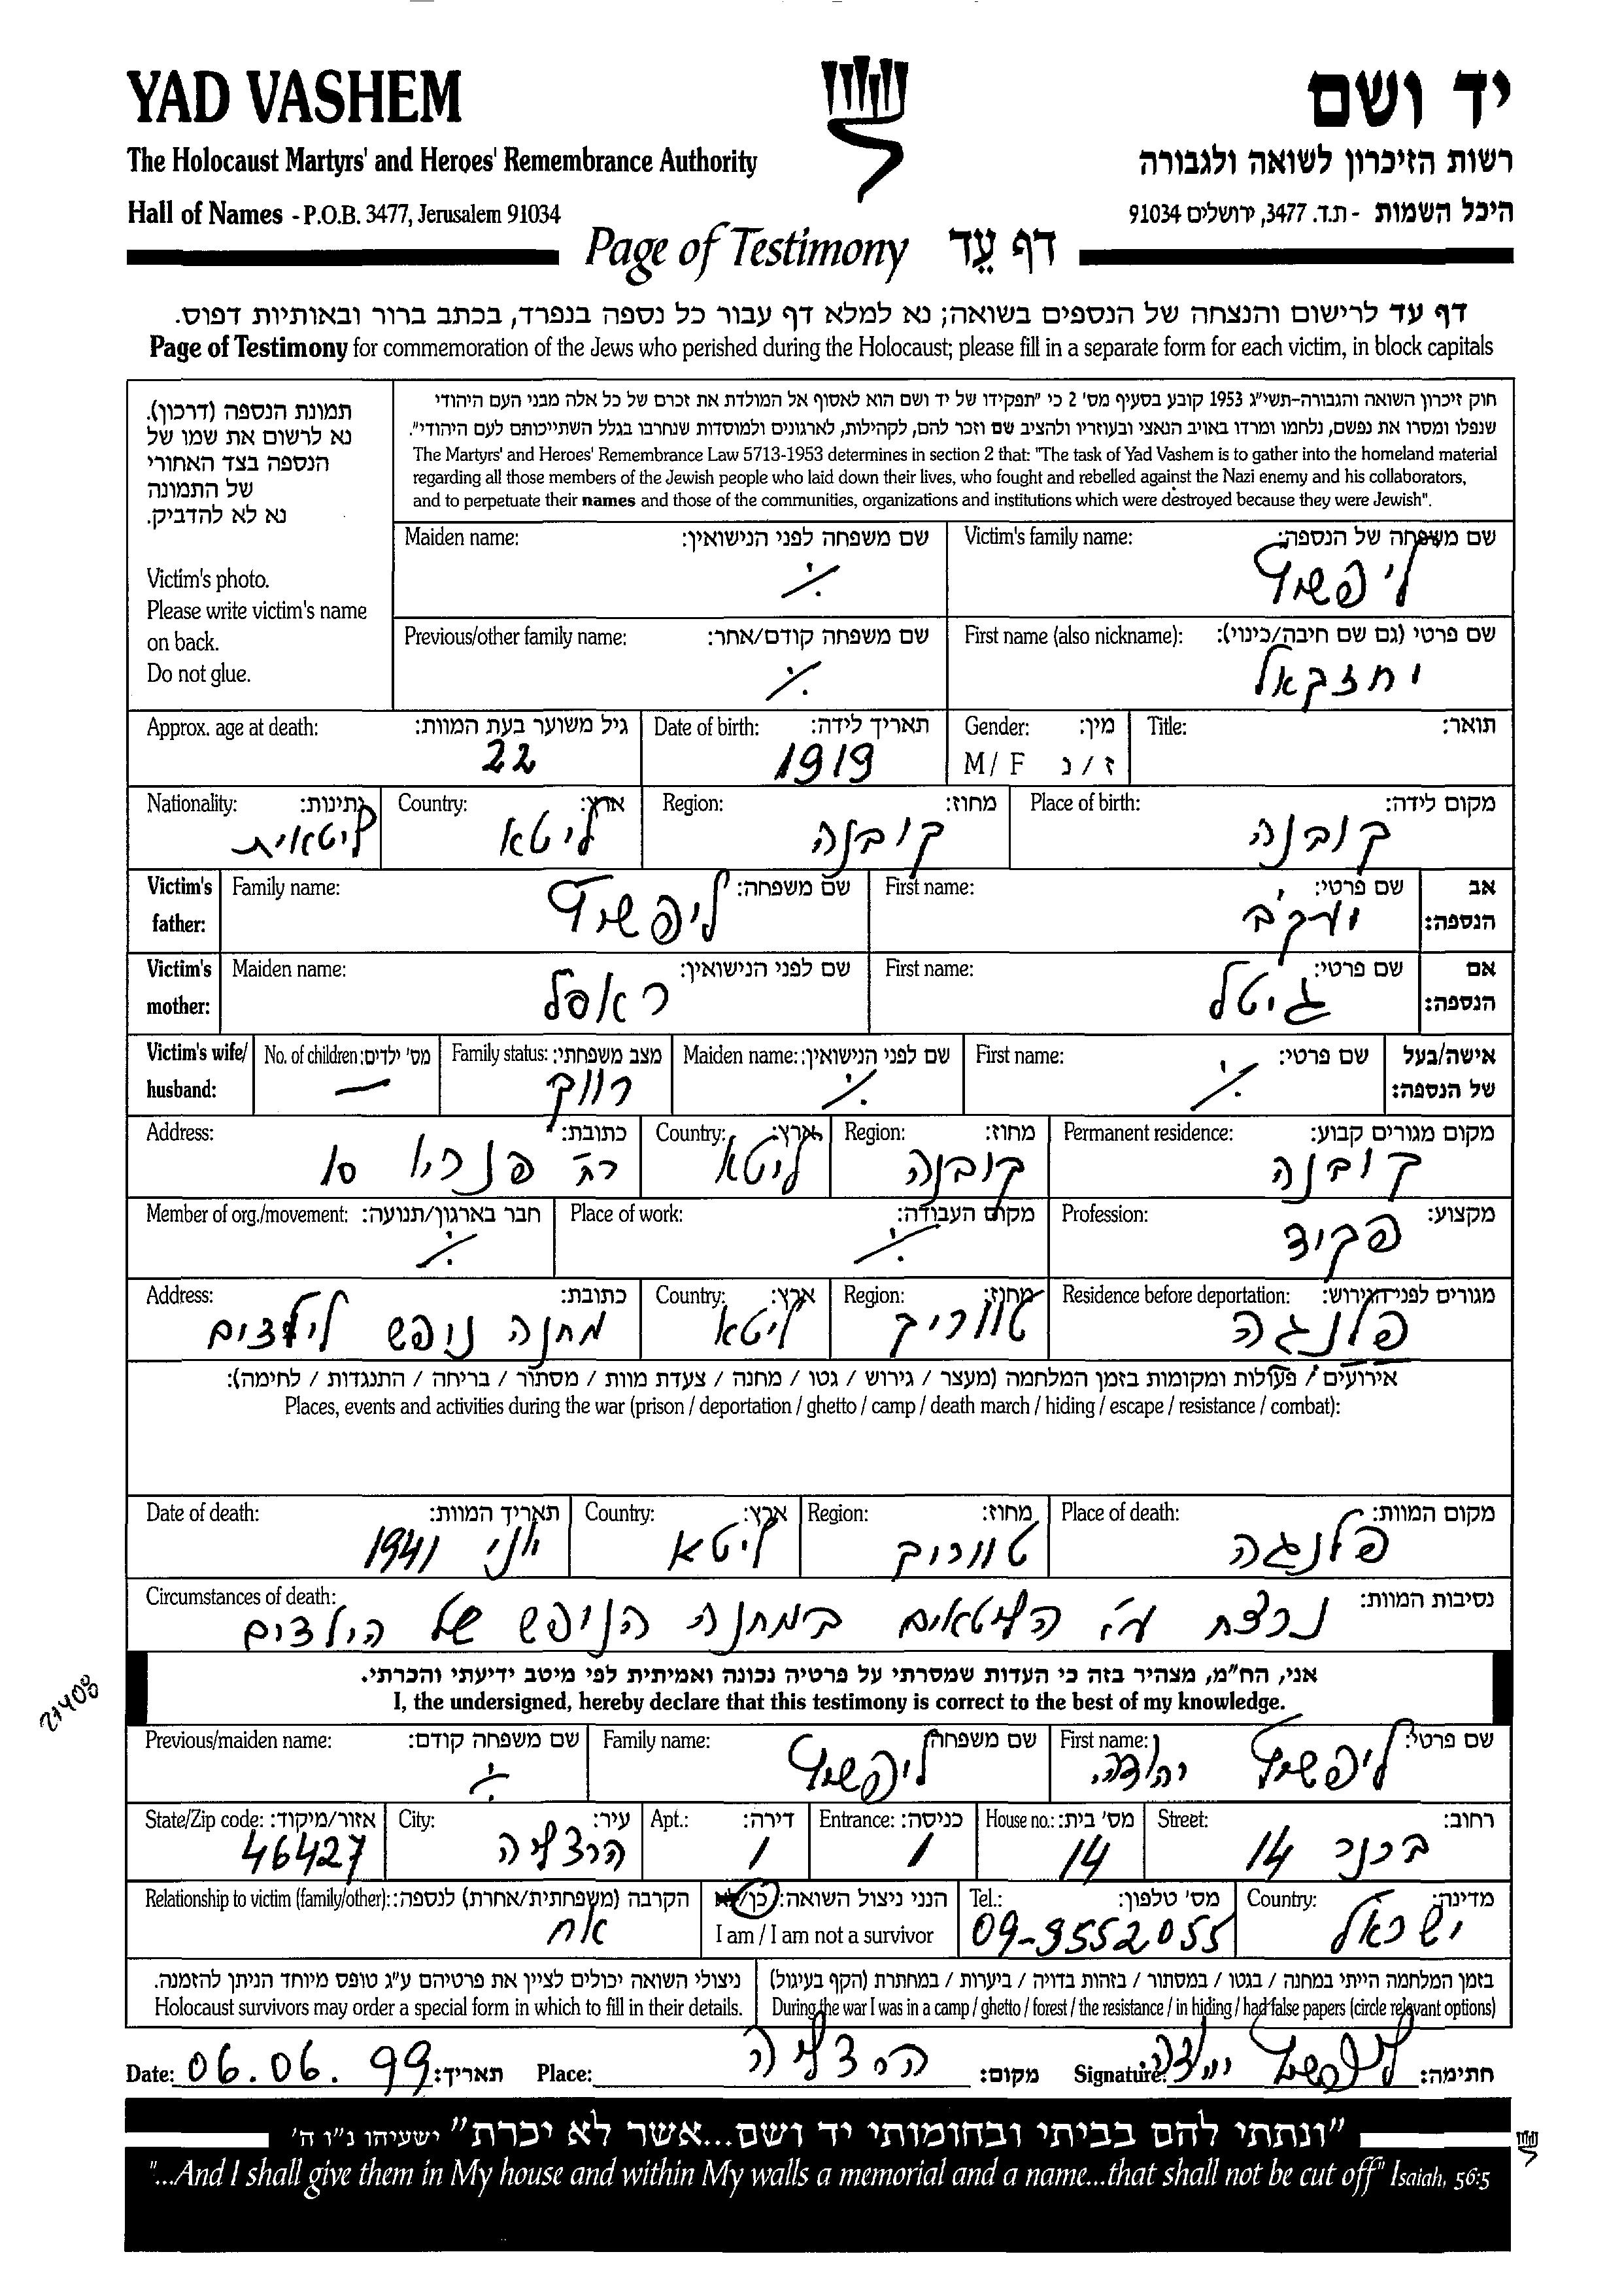 YAD VASHEM
יד ושם
The Holocaust Martyrs' and Heroes' Remembrance Authority
רשות הזיכרון לשואה ולגבורה
Hall of Names - P.O.B. 3477, Jerusalem 91034
היכל השמות - ת.ד. 3477, ירושלים 91034
Page of Testimony דף עֵד
דף עד לרישום והנצחה של הנספים בשואה; נא למלא דף עבור כל נספה בנפרד, בכתב ברור ובאותיות דפוס.
Page of Testimony for commemoration of the Jews who perished during the Holocaust; please fill in a separate form for each victim, in block capitals
תמונת הנספה (דרכון).
נא לרשום את שמו של
הנספה בצד האחורי
של התמונה
נא לא להדביק.
Victim's photo.
Please write victim's name
on back.
Do not glue.
חוק זיכרון השואה והגבורה-תשי"ג 1953 קובע בסעיף מס' 2 כי "תפקידו של יד ושם הוא לאסוף אל המולדת את זכרם של כל אלה מבני העם היהודי
שנפלו ומסרו את נפשם, נלחמו ומרדו באויב הנאצי ובעוזריו ולהציב שם וזכר להם, לקהילות, לארגונים ולמוסדות שנחרבו בגלל השתייכותם לעם היהודי".
The Martyrs' and Heroes' Remembrance Law 5713-1953 determines in section 2 that: "The task of Yad Vashem is to gather into the homeland material
regarding all those members of the Jewish people who laid down their lives, who fought and rebelled against the Nazi enemy and his collaborators,
and to perpetuate their names and those of the communities, organizations and institutions which were destroyed because they were Jewish".
Victim's family name: שם משפחה של הנספה:
ליפשיץ
Maiden name: שם משפחה לפני הנישואין:
./.
First name (also nickname): שם פרטי (גם שם חיבה/כינוי):
יחזקאל
Previous/other family name: שם משפחה קודם/אחר:
./.
Title: תואר:
Gender: מין:
M / F ז / נ
Date of birth: תאריך לידה:
1919
Approx. age at death: גיל משוער בעת המוות:
22
Place of birth: מקום לידה:
קובנה
Region: מחוז:
קובנה
Country: ארץ:
ליטא
Nationality: נתינות:
ליטאית
Victim's father: אב הנספה:
First name: שם פרטי:
יעקב
Family name: שם משפחה:
ליפשיץ
Victim's mother: אם הנספה:
First name: שם פרטי:
גיטל
Maiden name: שם לפני הנישואין:
Victim's wife/ husband: אישה/בעל של הנספה:
First name: שם פרטי:
./.
Maiden name: שם לפני הנישואין:
./.
Family status: מצב משפחתי:
רווק
No. of children: מס' ילדים:
—
Permanent residence: מקום מגורים קבוע:
קובנה
Region: מחוז:
קובנה
Country: ארץ:
ליטא
Address: כתובת:
רח' 10
Profession: מקצוע:
פקיד
Place of work: מקום העבודה:
./.
Member of org./movement: חבר בארגון/תנועה:
./.
Residence before deportation: מגורים לפני הגירוש:
פלנגה
Region: מחוז:
טווריק
Country: ארץ:
ליטא
Address: כתובת:
מחנה נופש לילדים
אירועים / פעולות ומקומות בזמן המלחמה (מעצר / גירוש / גטו / מחנה / צעדת מוות / מסתור / בריחה / התנגדות / לחימה):
Places, events and activities during the war (prison / deportation / ghetto / camp / death march / hiding / escape / resistance / combat):
Place of death: מקום המוות:
פלנגה
Region: מחוז:
טווריק
Country: ארץ:
ליטא
Date of death: תאריך המוות:
יוני 1941
Circumstances of death: נסיבות המוות:
נרצח ע"י הליטאים במחנה הנופש של הילדים
אני, הח"מ, מצהיר בזה כי העדות שמסרתי על פרטיה נכונה ואמיתית לפי מיטב ידיעתי והכרתי.
I, the undersigned, hereby declare that this testimony is correct to the best of my knowledge.
27408
First name: שם פרטי:
ליפשיץ יהודה
Family name: שם משפחה:
ליפשיץ
Previous/maiden name: שם משפחה קודם:
./.
Street: רחוב:
ברנר 14
House no.: מס' בית:
14
Entrance: כניסה:
1
Apt.: דירה:
1
City: עיר:
הרצליה
State/Zip code: אזור/מיקוד:
46427
Country: מדינה:
ישראל
Tel.: מס' טלפון:
09-9552055
הנני ניצול השואה: כן/לא
I am / I am not a survivor
Relationship to victim (family/other): הקרבה (משפחתית/אחרת) לנספה:
אח
בזמן המלחמה הייתי במחנה / בגטו / במסתור / בזהות בדויה / ביערות / במחתרת (הקף בעיגול)
During the war I was in a camp / ghetto / forest / the resistance / in hiding / had false papers (circle relevant options)
ניצולי השואה יכולים לציין את פרטיהם ע"ג טופס מיוחד הניתן להזמנה.
Holocaust survivors may order a special form in which to fill in their details.
Date: 06.06.99 תאריך: Place: הרצליה מקום: Signature: ליפשיץ יהודה חתימה:
"ונתתי להם בביתי ובחומותי יד ושם...אשר לא יכרת" ישעיהו נ"ו ה'
"...And I shall give them in My house and within My walls a memorial and a name...that shall not be cut off" Isaiah, 56:5